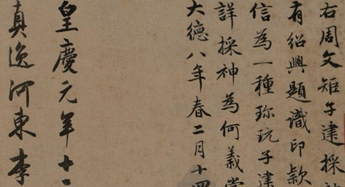 右周文矩子建採神
有紹興題識印款
信為一種珎玩子津
詳採神為何義當
大德八年春二月十四
皇慶元年十二
真逸河東李